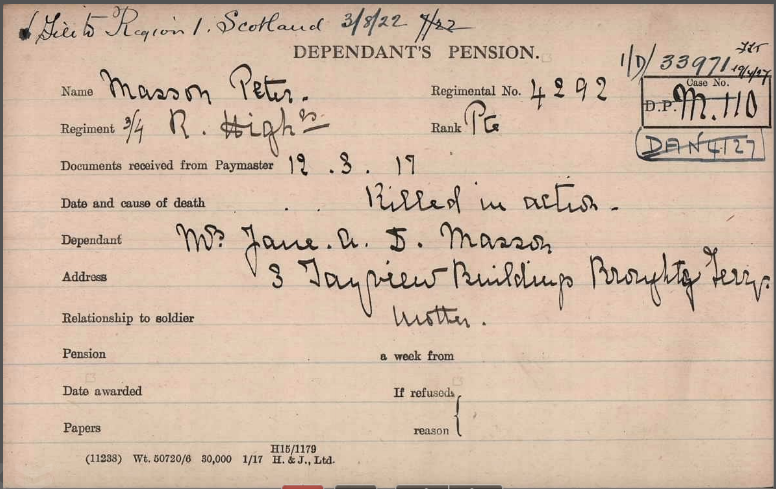 File to Region 1. Scotland 3/8/22 7/22
DEPENDANT'S PENSION.
1/D/33971
Name Masson Peter. Regimental No. 4292
Case No.
D.P. M.110
Regiment 3/4 R. Highrs Rank Pte
DAN4127
Documents received from Paymaster 12.3.17
Date and cause of death Killed in action.
Dependant Mrs Jane. A. D. Masson
Address 3 Tayview Buildings Broughty Ferry.
Relationship to soldier Mother.
Pension a week from
Date awarded If refused,
Papers reason
H15/1179
(11238) Wt. 50720/6 30,000 1/17 H. & J., Ltd.